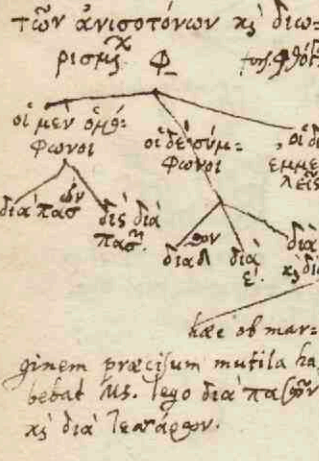 τῶν ἀνισοτόνων κὶ διω=
ρισμ
οἱ μὲν ὁμό=
φωνοι
οἱ δὲ σύμ=
φωνοι
οἱ δὲ
ἐμμε
λεῖς
διὰ πασῶν
δὶς διὰ
πασ
διὰ δ
διὰ
ε΄
διὰ
κὶ διὰ
hæc ob mar=
ginem præcisum mutila ha
bebat Ms. lego διὰ πασῶν
κὶ διὰ τεσσάρων.